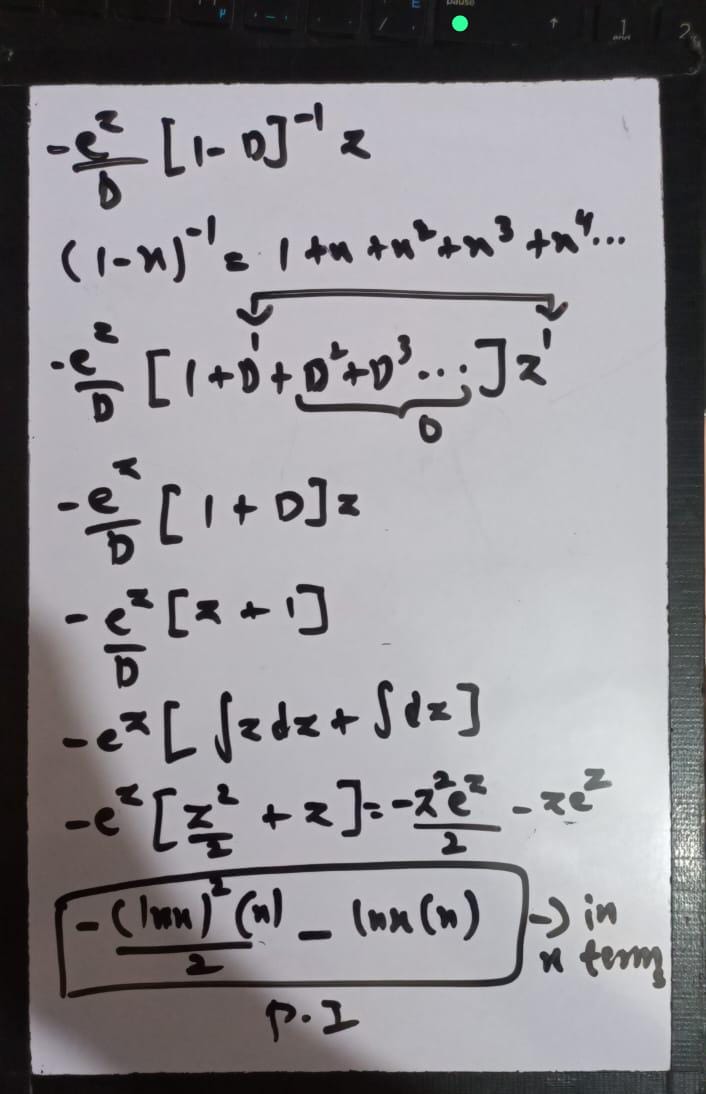 P E pause 1 2
-e^z/D [1-D]^-1 z
(1-x)^-1 = 1+x+x^2+x^3+x^4...
-e^z/D [1+D^1+D^2+D^3...]z^1
0
-e^z/D [1+D]z
-e^z/D [z+1]
-e^z[∫zdz+∫dz]
-e^z[z^2/2+z]=-z^2e^z/2-ze^z
-(lnx)^2(x)/2 - lnx(x) → in
x terms
P.I